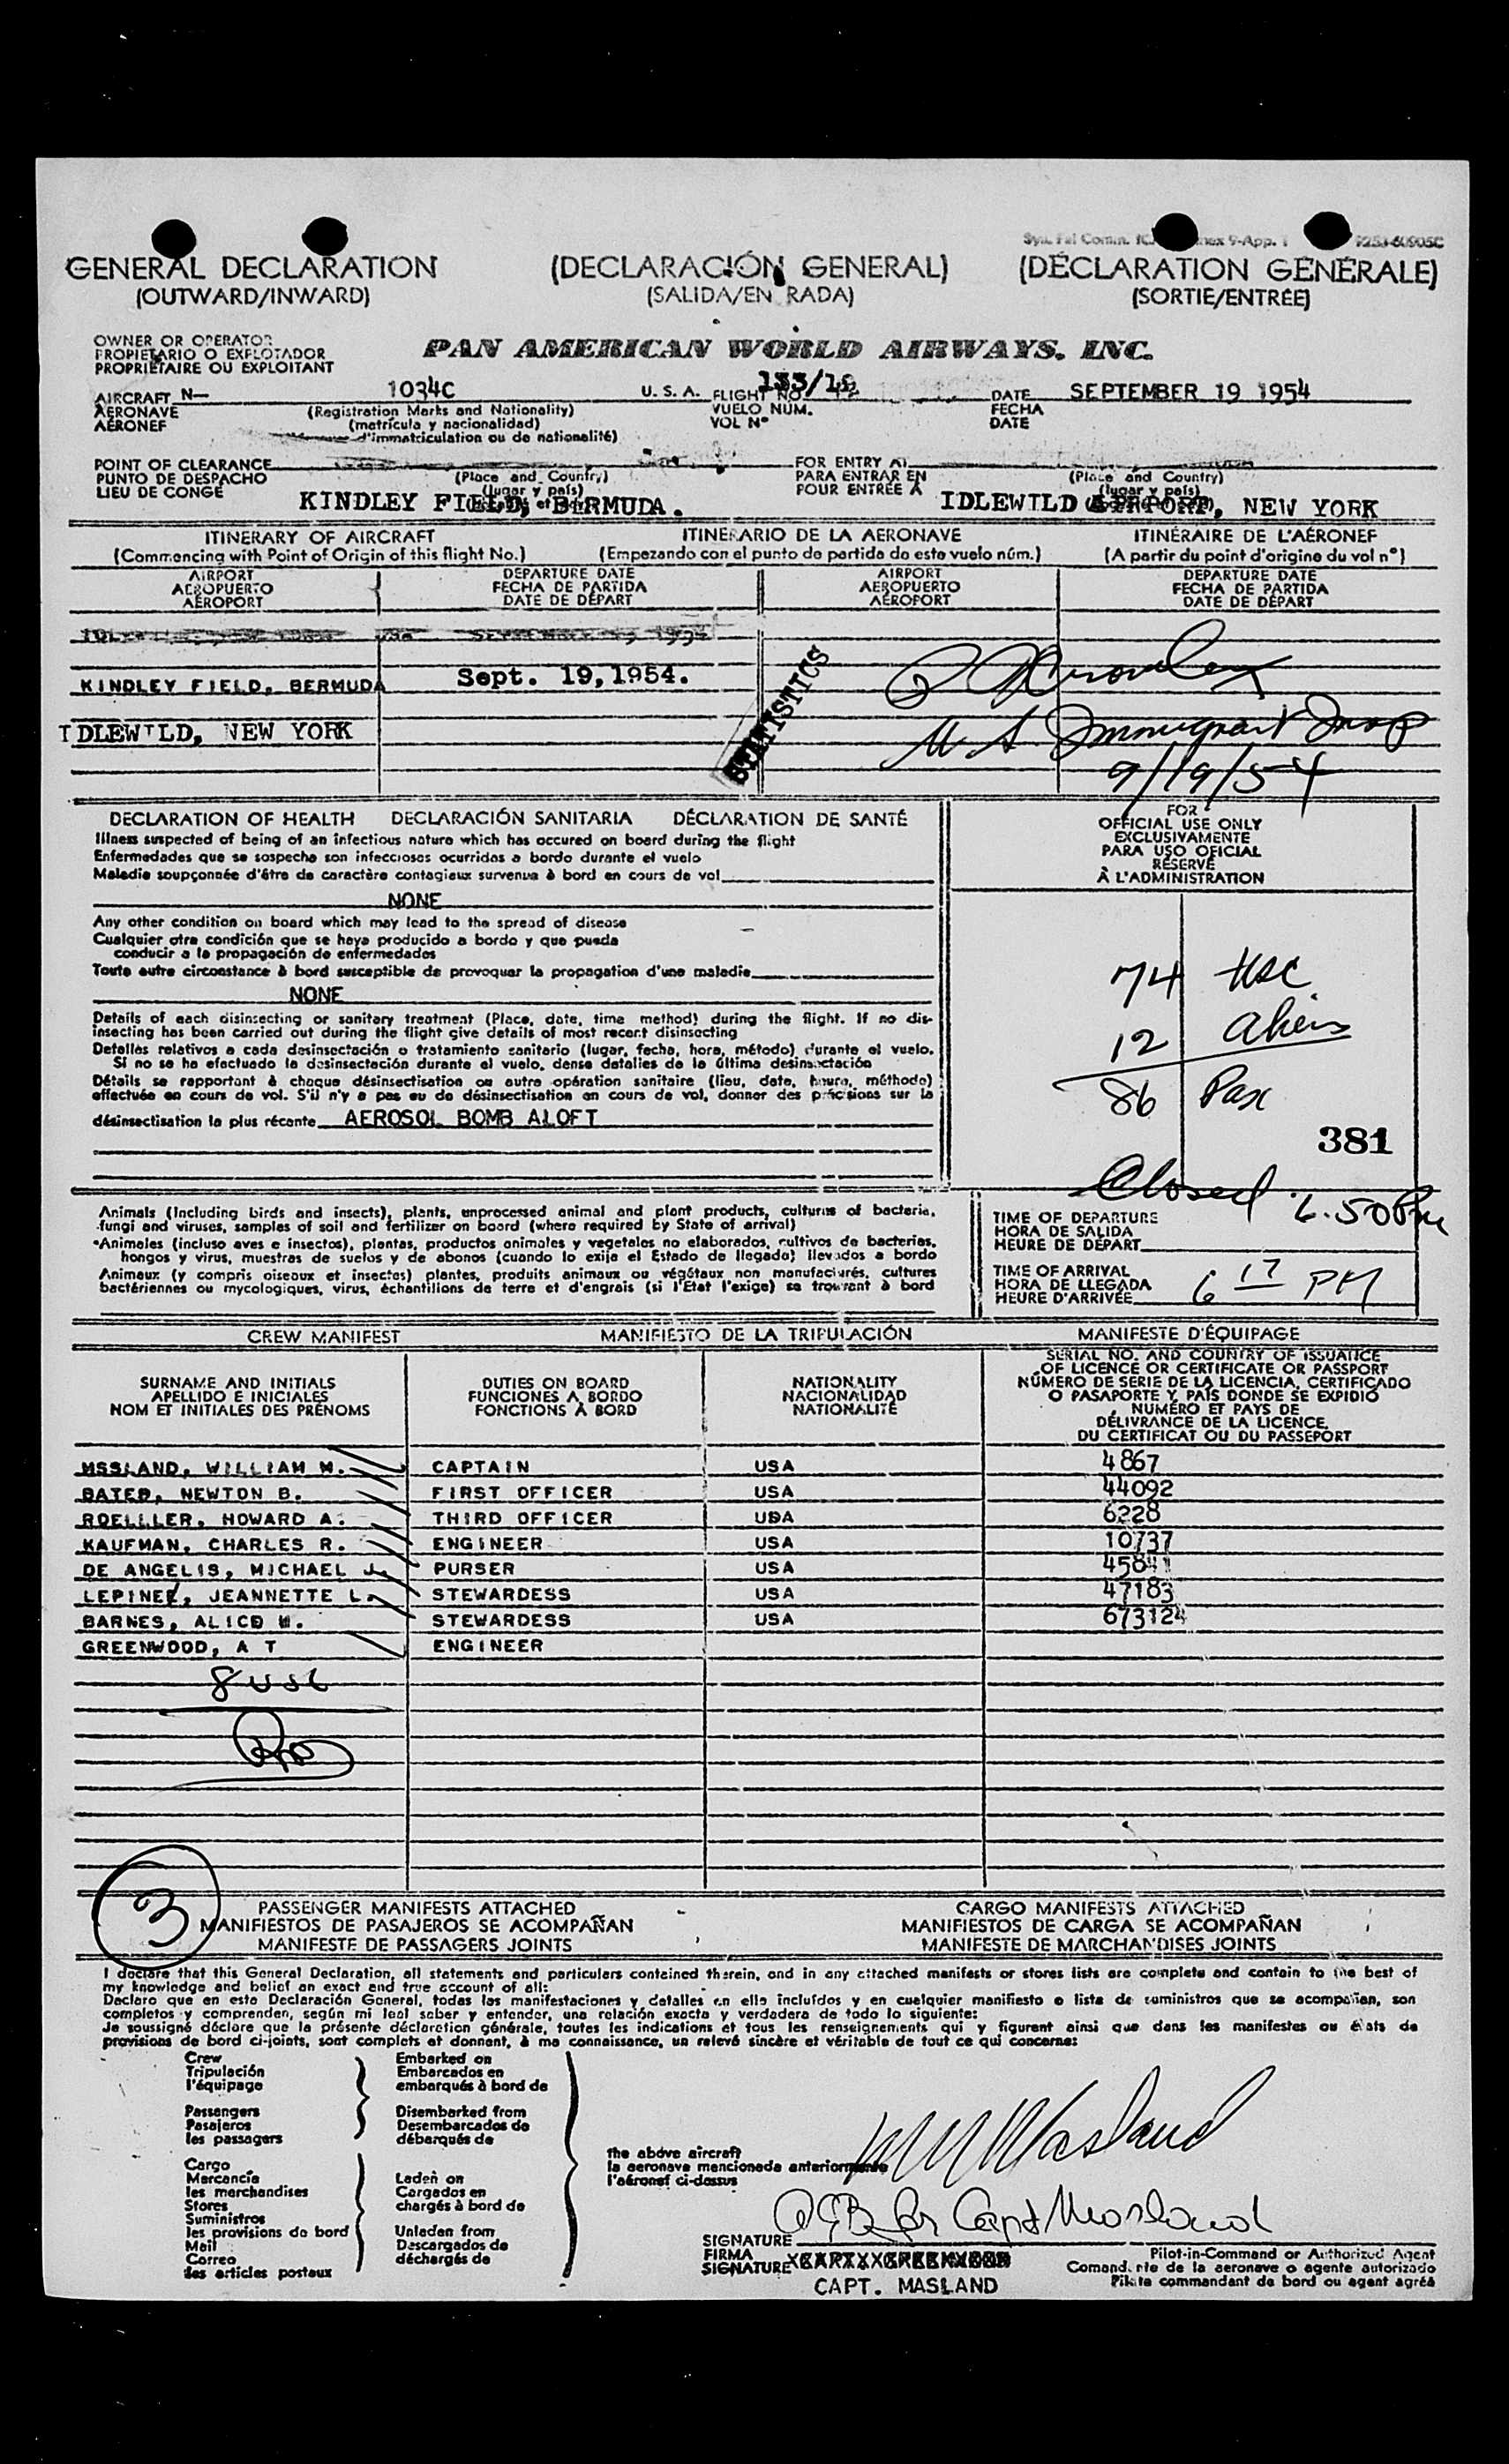 GENERAL DECLARATION (DECLARACIÓN GENERAL) (DÉCLARATION GÉNÉRALE)
(OUTWARD/INWARD) (SALIDA/EN RADA) (SORTIE/ENTRÉE)
OWNER OR OPERATOR
PROPIETARIO O EXPLOTADOR
PROPRIÉTAIRE OU EXPLOITANT
PAN AMERICAN WORLD AIRWAYS, INC.
AIRCRAFT N— 1034C U. S. A. FLIGHT NO. DATE SEPTEMBER 19 1954
AERONAVE (Registration Marks and Nationality) VUELO NÚM. FECHA
AÉRONEF (matrícula y nacionalidad) VOL Nº DATE
d'immatriculation ou de nationalité)
POINT OF CLEARANCE FOR ENTRY AT
PUNTO DE DESPACHO (Place and Country) PARA ENTRAR EN (Place and Country)
LIEU DE CONGÉ (lugar y país) POUR ENTRÉE À (lugar y país)
KINDLEY FIELD, BERMUDA. IDLEWILD AIRPORT, NEW YORK
ITINERARY OF AIRCRAFT ITINERARIO DE LA AERONAVE ITINÉRAIRE DE L'AÉRONEF
(Commencing with Point of Origin of this flight No.) (Empezando con el punto de partida de este vuelo núm.) (A partir du point d'origine du vol nº)
AIRPORT DEPARTURE DATE AIRPORT DEPARTURE DATE
AEROPUERTO FECHA DE PARTIDA AEROPUERTO FECHA DE PARTIDA
AÉROPORT DATE DE DÉPART AÉROPORT DATE DE DÉPART
KINDLEY FIELD, BERMUDA Sept. 19,1954.
STATISTICS
IDLEWILD, NEW YORK
U S Immigrant Insp
9/19/54
DECLARATION OF HEALTH DECLARACIÓN SANITARIA DÉCLARATION DE SANTÉ
Illness suspected of being of an infectious nature which has occured on board during the flight
Enfermedades que se sospecha son infecciosas ocurridas a bordo durante el vuelo
Maladie soupçonnée d'être de caractère contagieux survenue à bord en cours de vol
NONE
Any other condition on board which may lead to the spread of disease
Cualquier otra condición que se haya producido a bordo y que pueda
conducir a la propagación de enfermedades
Toute autre circonstance à bord susceptible de provoquer la propagation d'une maladie
NONE
Details of each disinsecting or sanitary treatment (Place, date, time method) during the flight. If no dis-
insecting has been carried out during the flight give details of most recent disinsecting
Detalles relativos a cada desinsectación o tratamiento sanitario (lugar, fecha, hora, método) durante el vuelo.
Si no se ha efectuado la desinsectación durante el vuelo, dense detalles de la última desinsectación
Détails se rapportant à chaque désinsectisation ou autre opération sanitaire (lieu, date, heure, méthode)
effectuée en cours de vol. S'il n'y a pas eu de désinsectisation en cours de vol, donner des précisions sur la
désinsectisation la plus récente AEROSOL BOMB ALOFT
FOR
OFFICIAL USE ONLY
EXCLUSIVAMENTE
PARA USO OFICIAL
RÉSERVÉ
À L'ADMINISTRATION
74 USC
12 Aliens
86 Pax
381
Closed 6.50 Pm
Animals (Including birds and insects), plants, unprocessed animal and plant products, cultures of bacteria,
fungi and viruses, samples of soil and fertilizer on board (where required by State of arrival)
Animales (incluso aves e insectos), plantas, productos animales y vegetales no elaborados, cultivos de bacterias,
hongos y virus, muestras de suelos y de abonos (cuando lo exija el Estado de llegada) llevados a bordo
Animaux (y compris oiseaux et insectes) plantes, produits animaux ou végétaux non manufacturés, cultures
bactériennes ou mycologiques, virus, échantillons de terre et d'engrais (si l'Etat l'exige) se trouvant à bord
TIME OF DEPARTURE
HORA DE SALIDA
HEURE DE DÉPART
TIME OF ARRIVAL
HORA DE LLEGADA
HEURE D'ARRIVÉE 6 17 PM
CREW MANIFEST MANIFIESTO DE LA TRIPULACIÓN MANIFESTE D'ÉQUIPAGE
SURNAME AND INITIALS
APELLIDO E INICIALES
NOM ET INITIALES DES PRÉNOMS
DUTIES ON BOARD
FUNCIONES A BORDO
FONCTIONS À BORD
NATIONALITY
NACIONALIDAD
NATIONALITÉ
SERIAL NO. AND COUNTRY OF ISSUANCE
OF LICENCE OR CERTIFICATE OR PASSPORT
NÚMERO DE SERIE DE LA LICENCIA, CERTIFICADO
O PASAPORTE Y PAÍS DONDE SE EXPIDIÓ
NUMÉRO ET PAYS DE
DÉLIVRANCE DE LA LICENCE,
DU CERTIFICAT OU DU PASSEPORT
MSSLAND, WILLIAM M. CAPTAIN USA 4867
BATED, NEWTON B. FIRST OFFICER USA 44092
ROELLLER, HOWARD A. THIRD OFFICER UDA 6228
KAUFMAN, CHARLES R. ENGINEER USA 10737
DE ANGELIS, MICHAEL J. PURSER USA
LEPINEE, JEANNETTE L. STEWARDESS USA 47183
BARNES, ALICE W. STEWARDESS USA 673124
GREENWOOD, A T ENGINEER
8 USC
3
PASSENGER MANIFESTS ATTACHED CARGO MANIFESTS ATTACHED
MANIFIESTOS DE PASAJEROS SE ACOMPAÑAN MANIFIESTOS DE CARGA SE ACOMPAÑAN
MANIFESTE DE PASSAGERS JOINTS MANIFESTE DE MARCHANDISES JOINTS
I declare that this General Declaration, all statements and particulars contained therein, and in any attached manifests or stores lists are complete and contain to the best of
my knowledge and belief an exact and true account of all:
Declaro que en esta Declaración General, todas las manifestaciones y detalles en ella incluídos y en cualquier manifiesto o lista de suministros que se acompañan, son
completos y comprenden, según mi leal saber y entender, una relación exacta y verdadera de todo lo siguiente:
Je soussigné déclare que la présente déclaration générale, toutes les indications et tous les renseignements qui y figurent ainsi que dans les manifestes ou états de
provisions de bord ci-joints, sont complets et donnent, à ma connaissance, un relevé sincère et véritable de tout ce qui concerne:
Crew
Tripulación
l'équipage
Passengers
Pasajeros
les passagers
Cargo
Mercancía
les marchandises
Stores
Suministros
les provisions de bord
Mail
Correo
les articles postaux
Embarked on
Embarcados en
embarqués à bord de
Disembarked from
Desembarcados de
débarqués de
Laden on
Cargados en
chargés à bord de
Unladen from
Descargados de
déchargés de
the above aircraft
la aeronave mencionada anteriormente
l'aéronef ci-dessus
WM Masland
for Capt Masland
SIGNATURE
FIRMA
SIGNATURE
CAPT. MASLAND
Pilot-in-Command or Authorized Agent
Comandante de la aeronave o agente autorizado
Pilote commandant de bord ou agent agréé